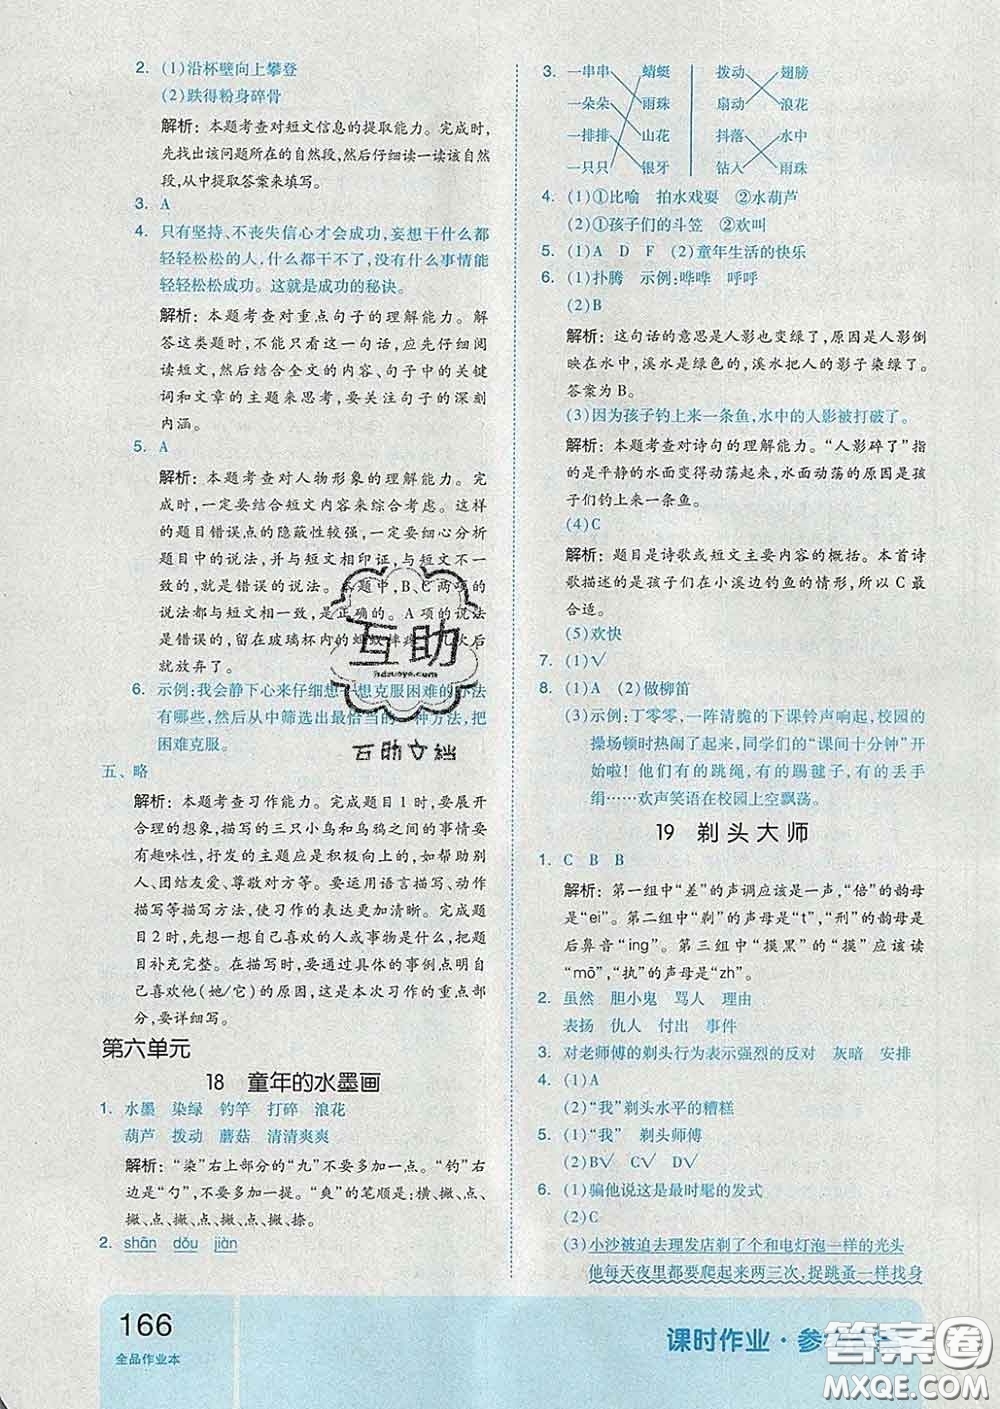 2. (1)沿杯壁向上攀登
(2)跌得粉身碎骨
解析：本题考查对短文信息的提取能力。完成时，
先找出该问题所在的自然段，然后仔细读一读该自然
段，从中提取答案来填写。
3. A
4. 只有坚持、不丧失信心才会成功，妄想干什么都
轻轻松松的人，什么都干不了，没有什么事情能
轻轻松松成功。这就是成功的秘诀。
解析：本题考查对重点句子的理解能力。解
答这类题时，不能只看这一句话，应先仔细阅
读短文，然后结合全文的内容、句子中的关键
词和文章的主题来思考，要关注句子的深刻
内涵。
5. A
解析：本题考查对人物形象的理解能力。完
成时，一定要结合短文内容来综合考虑。这样
的题目错误点的隐蔽性较强，一定要细心分析
题目中的说法，并与短文相印证，与短文不一
致的，就是错误的说法。本题中，B、C两项的
说法都与短文相一致，是正确的。A项的说法
是错误的，在玻璃杯内的蚂蚁摔疼几次后
就放弃了。
6. 示例：我会静下心来仔细想一想克服困难的办法
有哪些，然后从中筛选出最恰当的一种方法，把
困难克服。
五、略
解析：本题考查习作能力。完成题目1时，要展开
合理的想象，描写的三只小鸟和乌鸦之间的事情要
有趣味性，抒发的主题应是积极向上的，如帮助别
人、团结友爱、尊敬对方等。要运用语言描写、动作
描写等描写方法，使习作的表达更加清晰。完成题
目2时，先想一想自己喜欢的人或事物是什么，把
题目补充完整。在描写时，要通过具体的事例点明自
己喜欢他(她/它)的原因，这是本次习作的重点部
分，要详细写。
第六单元
18 童年的水墨画
1. 水墨 染绿 钓竿 打碎 浪花
葫芦 拨动 蘑菇 清清爽爽
解析：“染”右上部分的“九”不要多加一点。“钓”右
边是“勺”，不要多加一提。“爽”的笔顺是：横、撇、点、
撇、点、撇、点、撇、点、撇、捺。
2. shān dǒu jiàn
3. 一串串 蜻蜓 拨动 翅膀
一朵朵 雨珠 扇动 浪花
一排排 山花 抖落 水中
一只只 银牙 钻入 雨珠
4. (1)①比喻 拍水戏耍 ②水葫芦
(2)①孩子们的斗笠 ②欢叫
5. (1)A D F (2)童年生活的快乐
6. (1)扑腾 示例：哗哗 呼呼
(2)B
解析：这句话的意思是人影也变绿了，原因是人影倒
映在水中，溪水是绿色的，溪水把人的影子染绿了。
答案为B。
(3)因为孩子钓上来一条鱼，水中的人影被打破了。
解析：本题考查对诗句的理解能力。“人影碎了”指
的是平静的水面变得动荡起来，水面动荡的原因是孩
子们钓上来一条鱼。
(4)C
解析：题目是诗歌或短文主要内容的概括。本首诗
歌描述的是孩子们在小溪边钓鱼的情形，所以C最
合适。
(5)欢快
7. (1)√
8. (1)A (2)做柳笛
(3)示例：丁零零，一阵清脆的下课铃声响起，校园的
操场顿时热闹了起来，同学们的“课间十分钟”开
始啦！他们有的跳绳，有的踢毽子，有的丢手
绢……欢声笑语在校园上空飘荡。
19 剃头大师
1. C B B
解析：第一组中“差”的声调应该是一声，“倍”的韵母
是“ei”。第二组中“剃”的声母是“t”，“刑”的韵母是
后鼻音“ing”。第三组中“摸黑”的“摸”应该读
“mō”，“执”的声母是“zh”。
2. 虽然 胆小鬼 骂人 理由
表扬 仇人 付出 事件
3. 对老师傅的剃头行为表示强烈的反对 灰暗 安排
4. (1)A
(2)“我”剃头水平的糟糕
5. (1)“我” 剃头师傅
(2)B√ C√ D√
6. (1)骗他说这是最时髦的发式
(2)C
(3)小沙被迫去理发店剃了个和电灯泡一样的光头
他每天夜里都要爬起来两三次，捉跳蚤一样找身
166
全品作业本
课时作业·参考答案
互助
hdzuoye.com
互助文档
答案圈
MXQE.COM